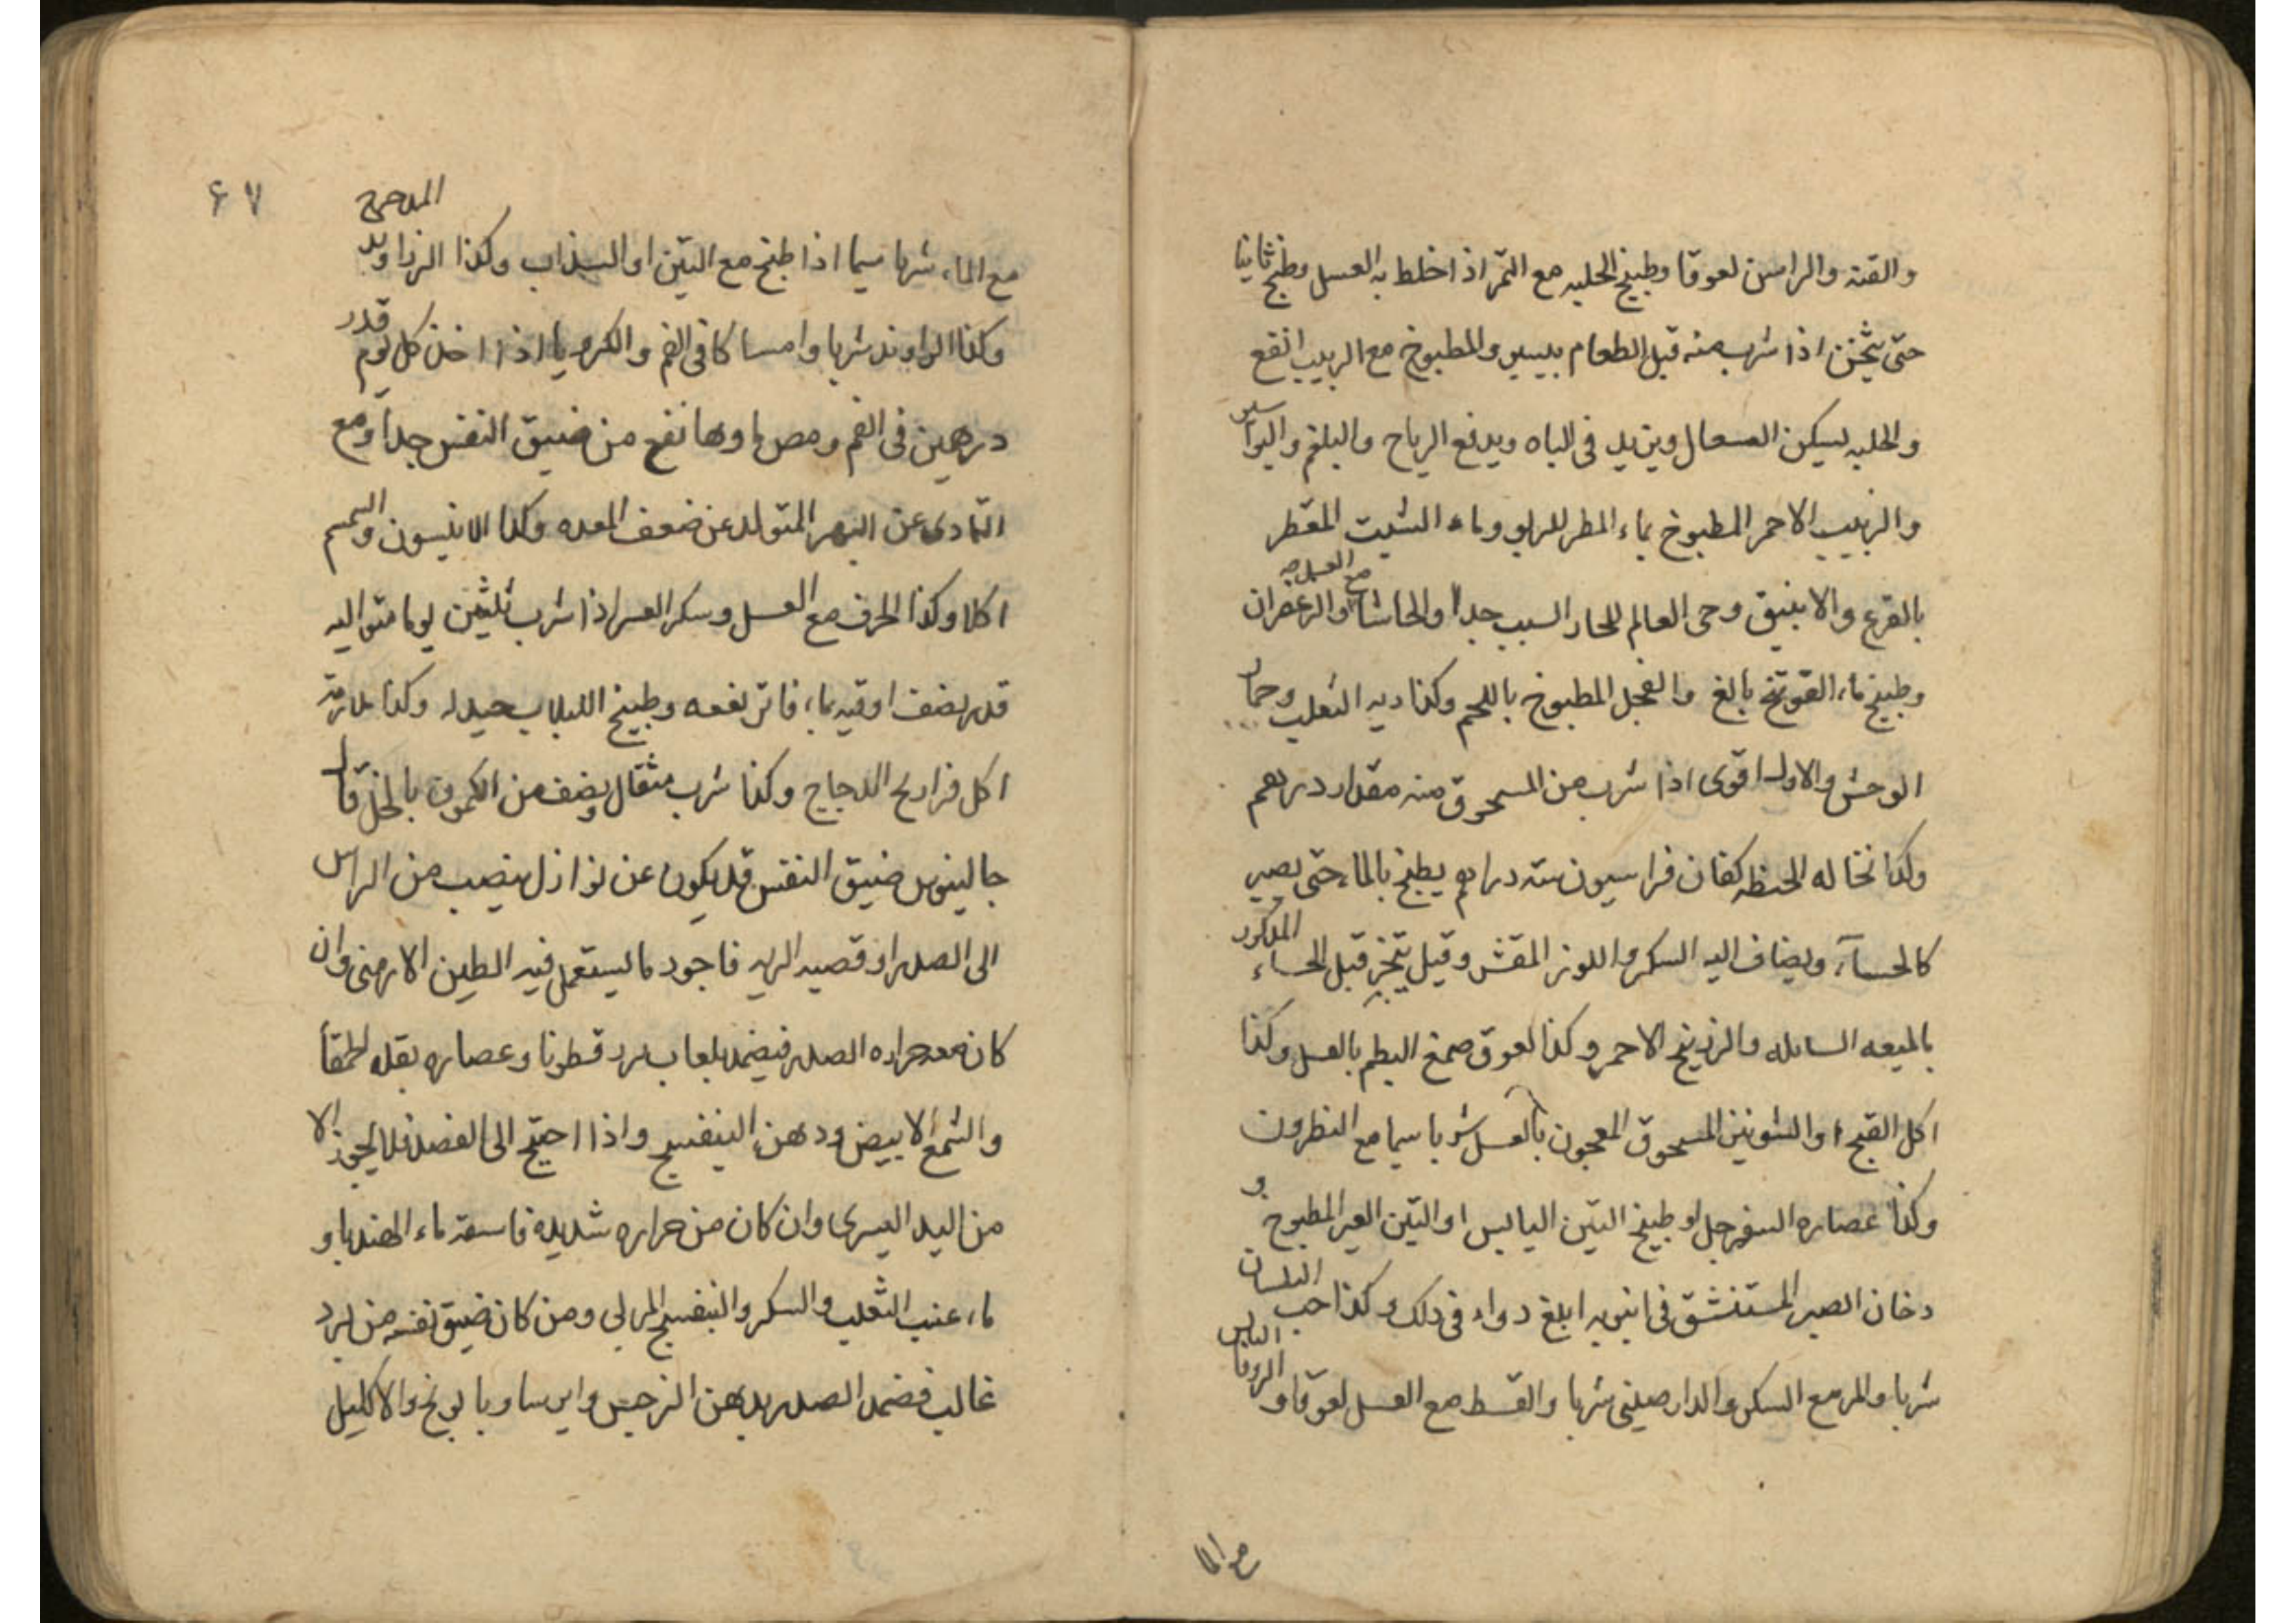 والقنه والراسن لعوقا وطبيخ الحلبه مع التمر اذا خلط به العسل وطبخ ثانيا
حتى يثخن اذا شرب منه قبل الطعام بيسير والمطبوخ مع الزبيب انفع
والحلبه ليسكن السعال ويزيد فى الباه ويدفع الرياح والبلغم والبواسير
والزبيب الاحمر المطبوخ بماء المطر للربو وماء الشبت المقطر
بالقرع والانبيق وحى العالم للحار السبب جدا والحاشا مع العسل والزعفران
وطبيخ ماء الفوتنج بالغ والفجل المطبوخ باللحم وكذا ريه الثعلب وحمار
الوحش والاول اقوى اذا شرب من المسحوق منه مقدار درهم
وكذا نخاله الحنطه كفان فراسيون سته دراهم يطبخ بالماء حتى يصير
كالحساء ويضاف اليه السكر واللوز المقشر وقيل يتبخر قبل الحساء المذكور
بالميعه السائله والزرنيخ الاحمر وكذا لعوق صمغ البطم بالعسل وكذا
اكل القبج او الشونيز المسحوق المعجون بالعسل شربا سيما مع النطرون
وكذا عصاره السفرجل او طبيخ التين اليابس او التين الغير المطبوخ و
دخان الصبر المستنشق فى انبوبه ابلغ دواء فى ذلك وكذا حب البلسان
شربا والمر مع السكر والدارصينى شربا والقسط مع العسل لعوقا و الزوفا اليابس
مع الما
٦٧
مع الماء شربا سيما اذا طبخ مع التين او السذاب وكذا الزراوند المدحرج
وكذا الراوند شربا وامساكا فى الفم والكرويا اذا اخذ كل يوم قدر
درهمين فى الفم ومص ماوها نفع من ضيق النفس جدا ومع
التمادى عن البهر المتولد عن ضعف المعده وكذا الانيسون والسمسم
اكلا وكذا الحرف مع العسل وسكر العشر اذا شرب ثلثين يوما متواليه
قدر نصف اوقيه بماء فاتر نفعه وطبيخ اللبلاب جيد له وكذا ملازمة
اكل فراريح الدجاج وكذا شرب مثقال ونصف من الكمون بالخل قال
جالينوس ضيق النفس قد يكون عن نوازل ينصب من الراس
الى الصدر او قصبه الريه فاجود ما يستعمل فيه الطين الارمنى وان
كان معه حراره الصدر فيضمد بلعاب بزر قطونا وعصاره بقله الحمقا
والشمع الابيض ودهن البنفسج واذا احتيج الى الفصد فلا يجوز الا
من اليد اليسرى وان كان من حراره شديده فاسقه ماء الهندبا و
ماء عنب الثعلب والسكر والبنفسج المربى ومن كان ضيق نفسه من برد
غالب فضمد الصدر بدهن النرجس وايرسا وبابونج والاكليل